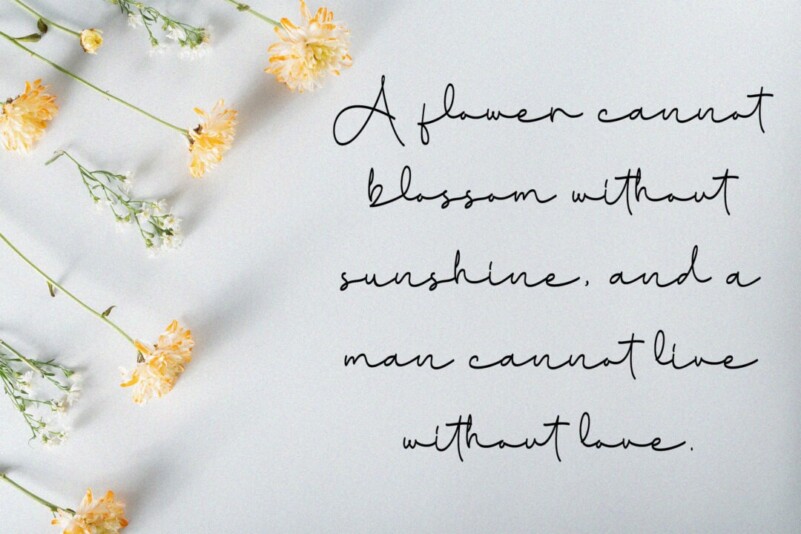 A flower cannot
blossom without
sunshine, and a
man cannot live
without love.